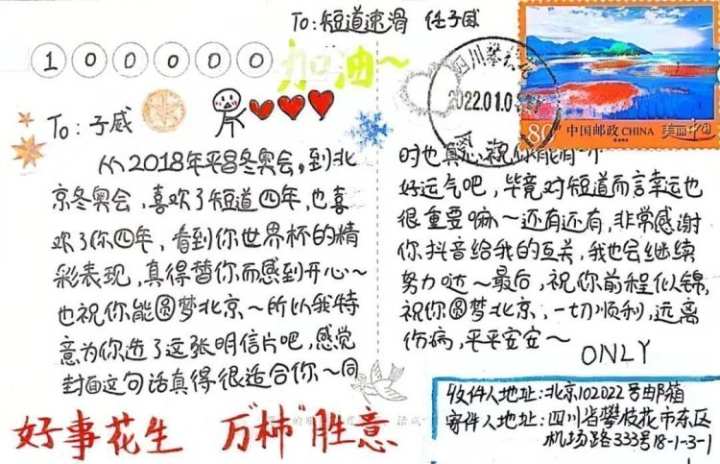 To:短道速滑 任子威
100000
加油~
To:子威
从2018年平昌冬奥会,到北
京冬奥会,喜欢了短道四年,也喜
欢了你四年,看到你世界杯的精
彩表现,真得替你而感到开心~
也祝你能圆梦北京~所以我特
意为你选了这张明信片吧,感觉
封面这句话真得很适合你~同
好事花生 万"柿"胜意
四川攀
2022.01.0
80分
中国邮政 CHINA
美丽中国
时也真心祝你能有一个
好运气吧,毕竟对短道而言幸运也
很重要嘛~还有还有,非常感谢
你抖音给我的互关,我也会继续
努力哒~最后,祝你前程似锦,
祝你圆梦北京,一切顺利,远离
伤病,平平安安~
ONLY
收件人地址:北京102022号邮箱
寄件人地址:四川省攀枝花市东区
机场路333号18-1-3-1